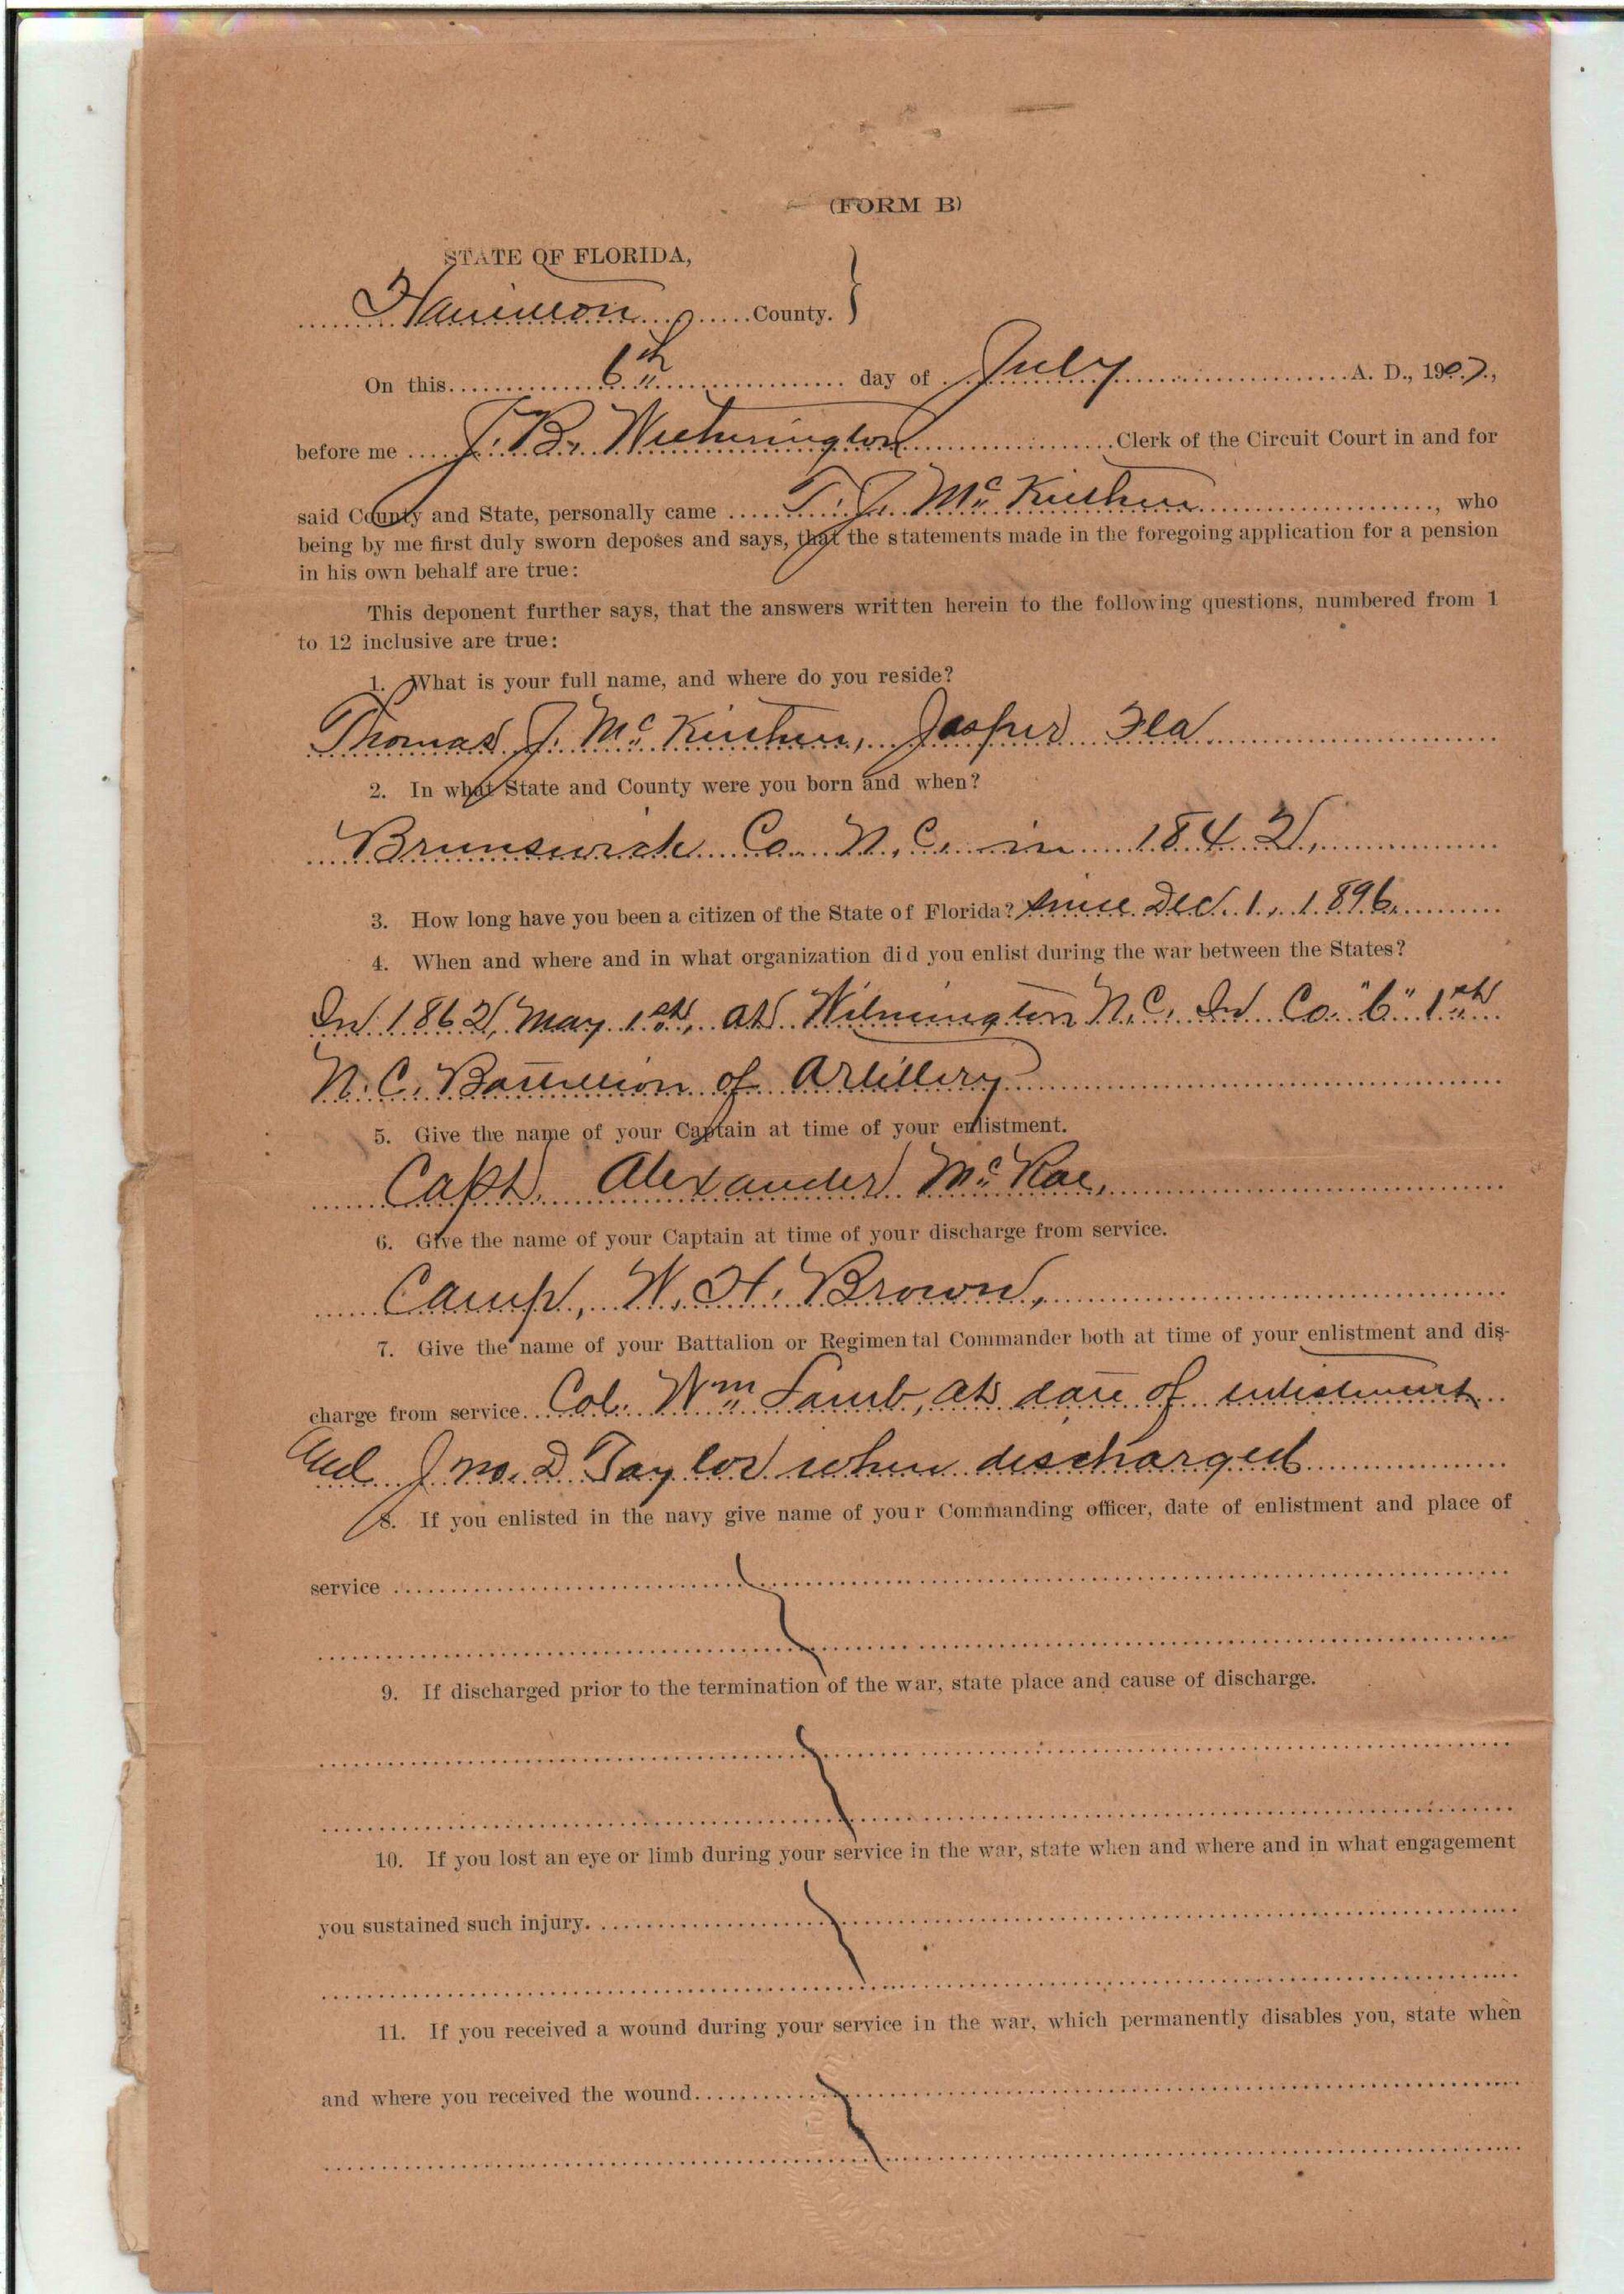 (FORM B)
STATE OF FLORIDA,
Hamilton County.
On this 6th day of July A. D., 1907,
before me J. B. Witherington Clerk of the Circuit Court in and for
said County and State, personally came T. J. Mc , who
being by me first duly sworn deposes and says, that the statements made in the foregoing application for a pension
in his own behalf are true:
This deponent further says, that the answers written herein to the following questions, numbered from 1
to 12 inclusive are true:
1. What is your full name, and where do you reside?
Thomas J. Mc , Jasper Fla
2. In what State and County were you born and when?
Brunswick Co. N. C. in 1842,
3. How long have you been a citizen of the State of Florida? since Dec. 1, 1896
4. When and where and in what organization did you enlist during the war between the States?
In 1862, May 1st, at Wilmington N. C. In Co. 1st
N. C. Battallion of Artillery
5. Give the name of your Captain at time of your enlistment.
Capt. Alexander McRae,
6. Give the name of your Captain at time of your discharge from service.
Camp, W. H. Brown,
7. Give the name of your Battalion or Regimental Commander both at time of your enlistment and dis-
charge from service. Col. Wm Lamb, at date of enlistment
And Jno. D Taylor when discharged
8. If you enlisted in the navy give name of your Commanding officer, date of enlistment and place of
service
9. If discharged prior to the termination of the war, state place and cause of discharge.
10. If you lost an eye or limb during your service in the war, state when and where and in what engagement
you sustained such injury.
11. If you received a wound during your service in the war, which permanently disables you, state when
and where you received the wound